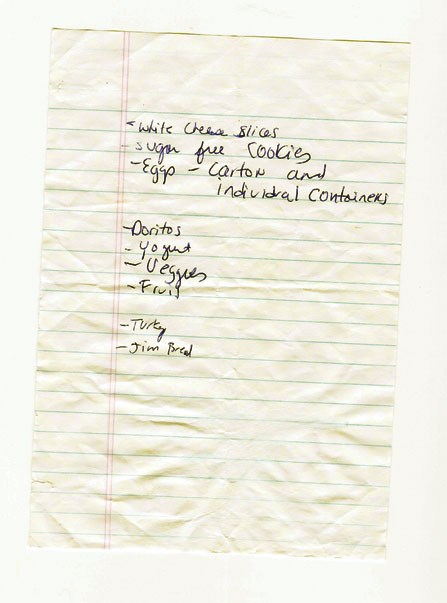 - White Cheese Slices
- Sugar free Cookies
- Eggs - Carton and
individral Containers
- Doritos
- Yogurt
- Veggies
- Fruit
- Turky
- Jim Bread